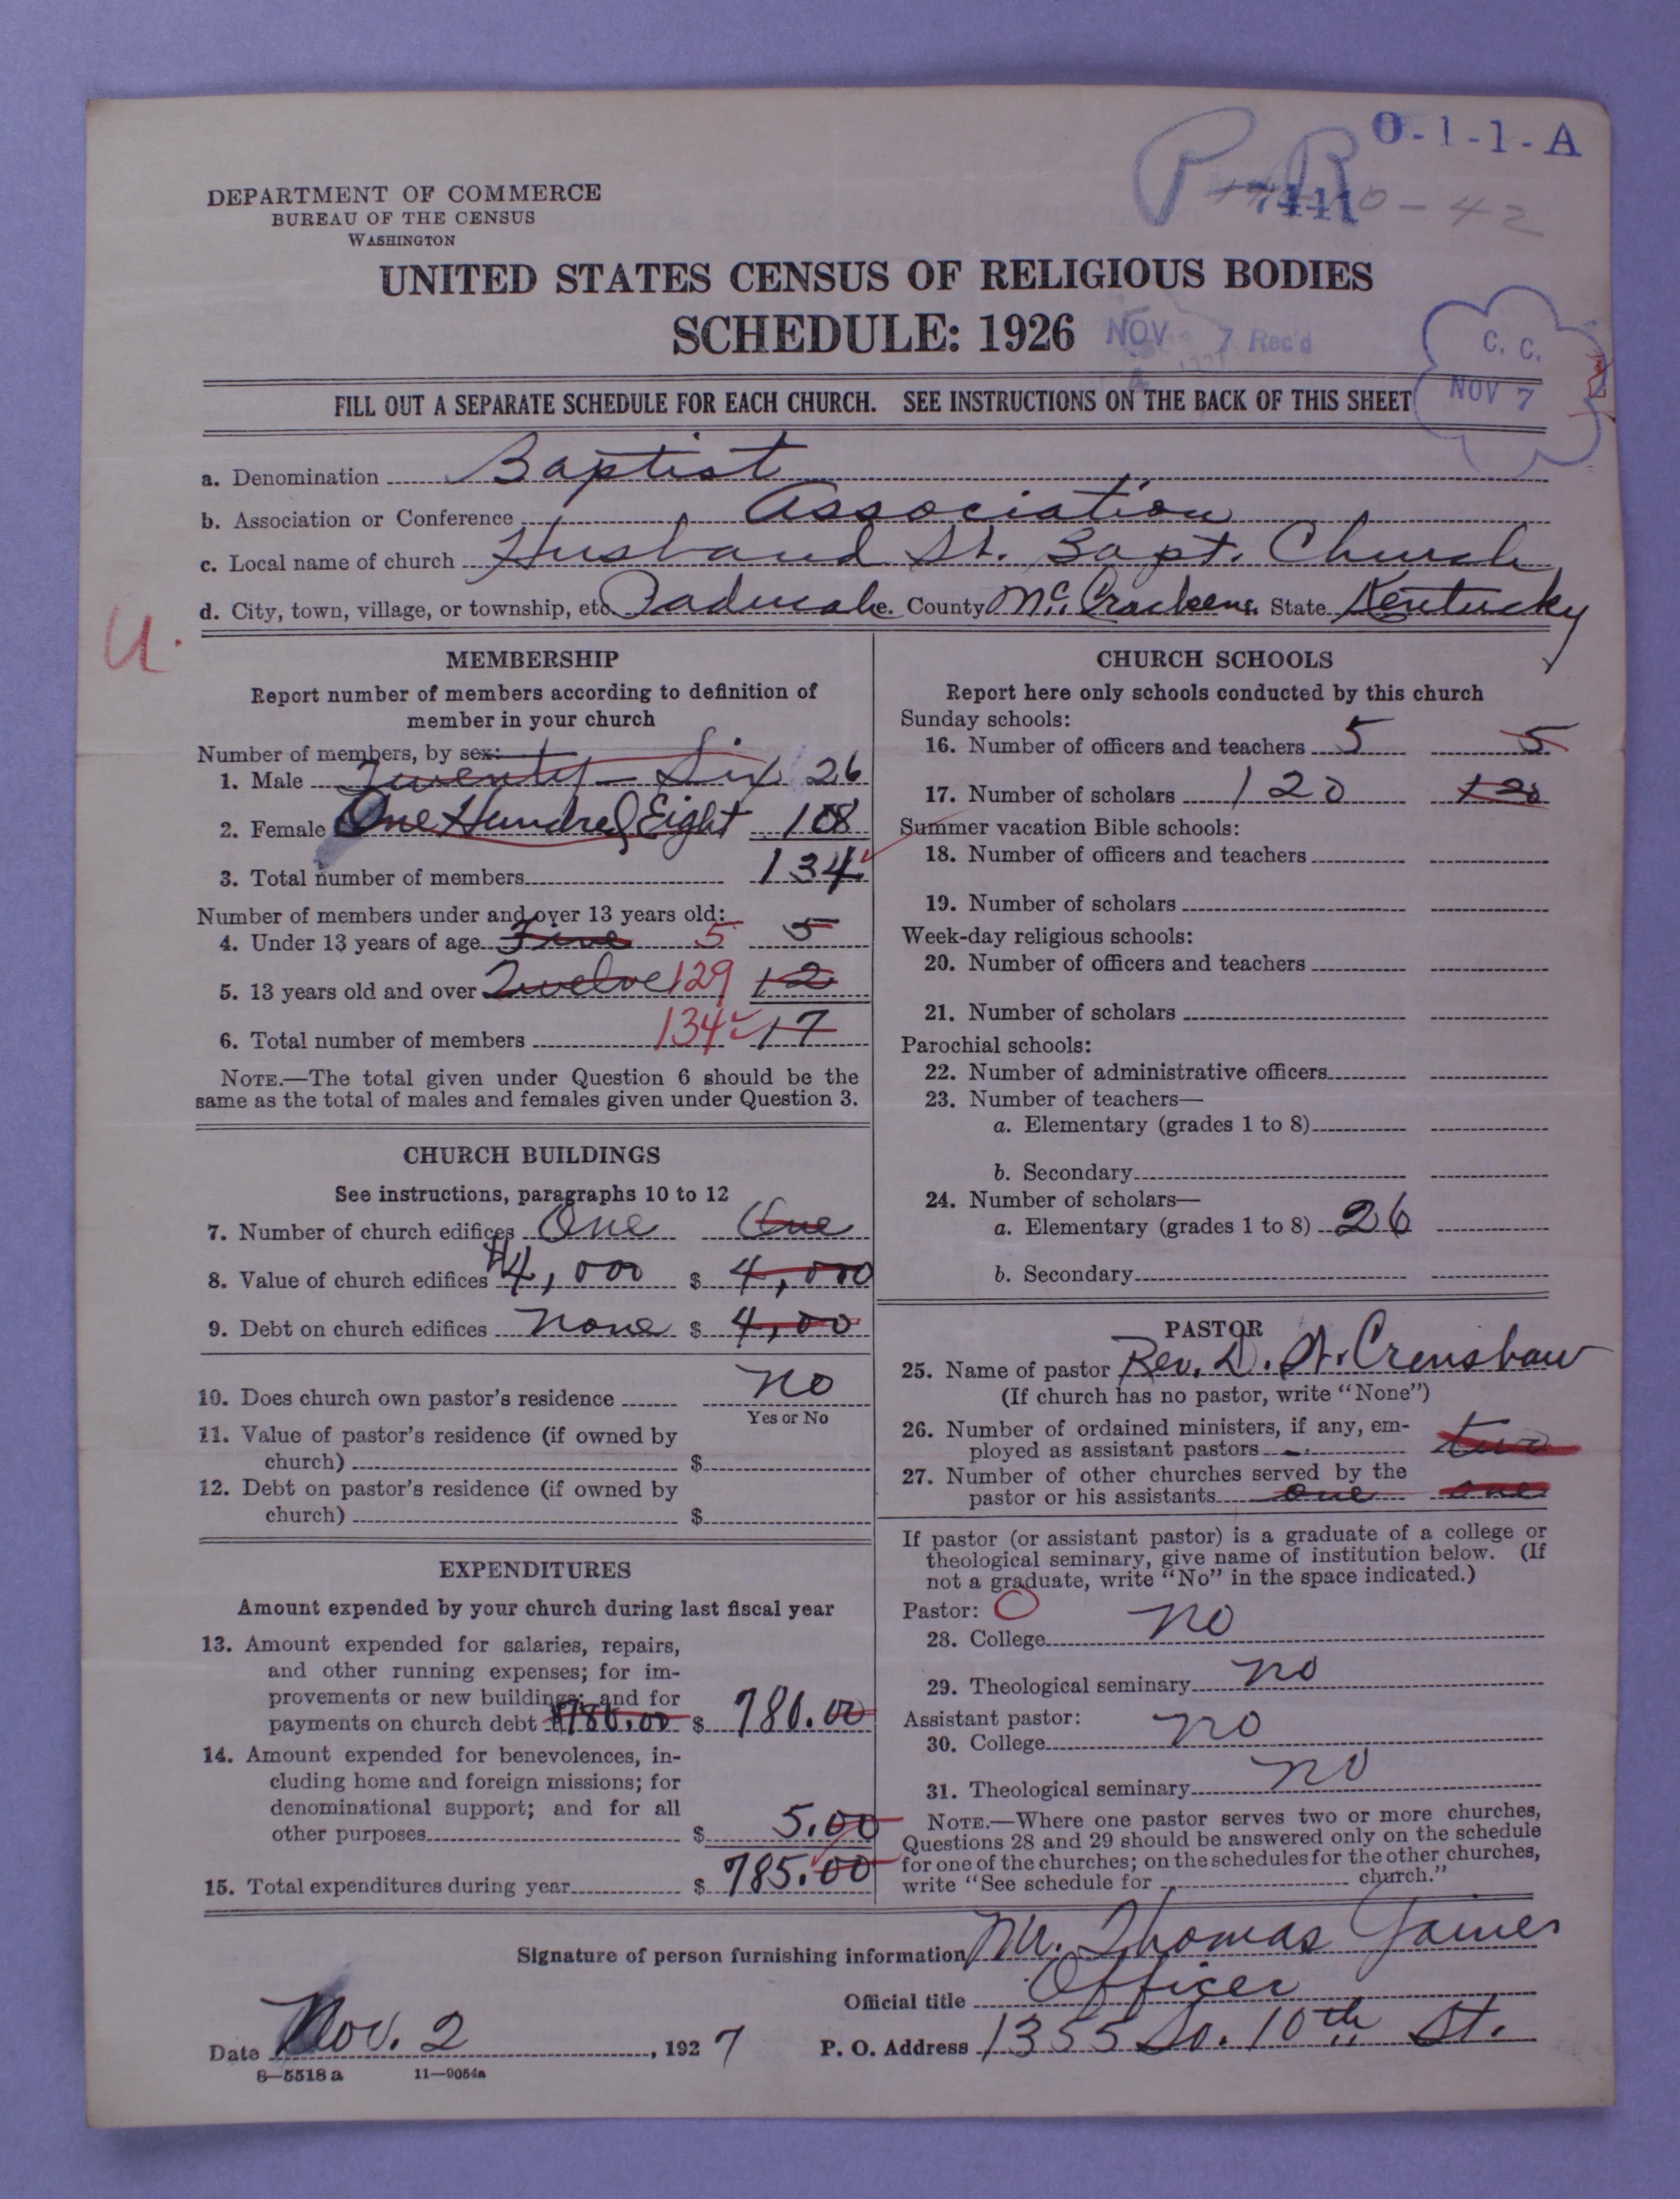 O-1-1-A
P R
7441
0-42
DEPARTMENT OF COMMERCE
BUREAU OF THE CENSUS
WASHINGTON
UNITED STATES CENSUS OF RELIGIOUS BODIES
SCHEDULE: 1926
NOV 7 Rec'd
C. C.
NOV 7
FILL OUT A SEPARATE SCHEDULE FOR EACH CHURCH. SEE INSTRUCTIONS ON THE BACK OF THIS SHEET
a. Denomination Baptist
b. Association or Conference Association
c. Local name of church Husband St. Bapt. Church
d. City, town, village, or township, etc. Paducah. County McCracken. State Kentucky
U.
MEMBERSHIP
Report number of members according to definition of
member in your church
Number of members, by sex:
1. Male Twenty-Six 26
2. Female One Hundred Eight 108
3. Total number of members 134
Number of members under and over 13 years old:
4. Under 13 years of age Five 5 5
5. 13 years old and over Twelve 129 12
6. Total number of members 134 17
NOTE.—The total given under Question 6 should be the
same as the total of males and females given under Question 3.
CHURCH BUILDINGS
See instructions, paragraphs 10 to 12
7. Number of church edifices One One
8. Value of church edifices $4,000 $ 4,000
9. Debt on church edifices None $ 4,00
10. Does church own pastor's residence No
Yes or No
11. Value of pastor's residence (if owned by
church) $
12. Debt on pastor's residence (if owned by
church) $
EXPENDITURES
Amount expended by your church during last fiscal year
13. Amount expended for salaries, repairs,
and other running expenses; for im-
provements or new buildings; and for
payments on church debt $780.00 $ 780.00
14. Amount expended for benevolences, in-
cluding home and foreign missions; for
denominational support; and for all
other purposes $ 5.00
15. Total expenditures during year $ 785.00
CHURCH SCHOOLS
Report here only schools conducted by this church
Sunday schools:
16. Number of officers and teachers 5 5
17. Number of scholars 120 120
Summer vacation Bible schools:
18. Number of officers and teachers
19. Number of scholars
Week-day religious schools:
20. Number of officers and teachers
21. Number of scholars
Parochial schools:
22. Number of administrative officers
23. Number of teachers—
a. Elementary (grades 1 to 8)
b. Secondary
24. Number of scholars—
a. Elementary (grades 1 to 8) 26
b. Secondary
PASTOR
25. Name of pastor Rev. D. W. Crenshaw
(If church has no pastor, write "None")
26. Number of ordained ministers, if any, em-
ployed as assistant pastors two
27. Number of other churches served by the
pastor or his assistants one one
If pastor (or assistant pastor) is a graduate of a college or
theological seminary, give name of institution below. (If
not a graduate, write "No" in the space indicated.)
Pastor: O
28. College No
29. Theological seminary No
Assistant pastor:
30. College No
31. Theological seminary No
NOTE.—Where one pastor serves two or more churches,
Questions 28 and 29 should be answered only on the schedule
for one of the churches; on the schedules for the other churches,
write "See schedule for church."
Signature of person furnishing information Mr. Thomas Gaines
Official title Officer
Date Nov. 2, 1927 P. O. Address 1355 So. 10th St.
8—5518a 11—9054a